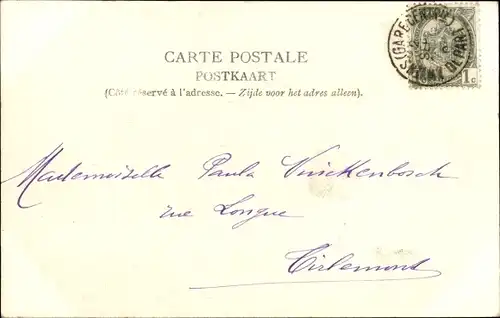 CARTE POSTALE
POSTKAART
(Côté réservé à l'adresse. — Zijde voor het adres alleen).
1c
(GARE CENTRALE)
DEPART
Mademoiselle Paula Vinckenbosch
rue Longue
Tirlemont